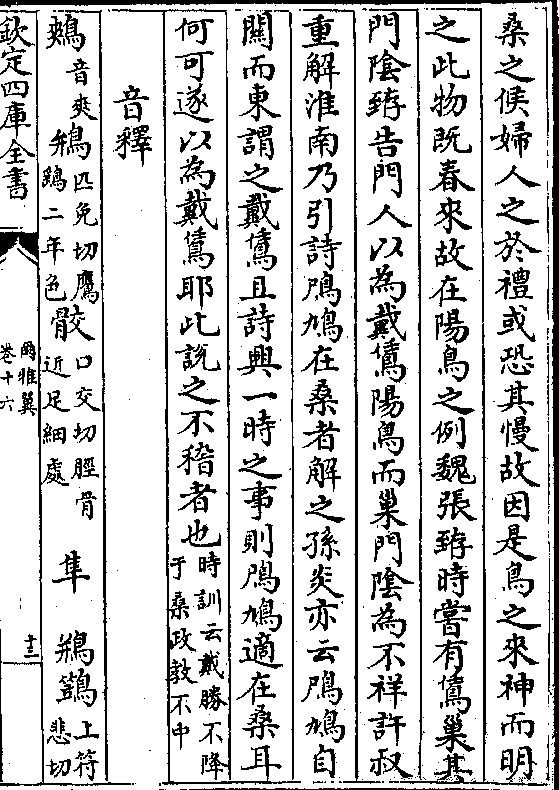 桑之候婦人之於禮或恐其慢故因是鳥之來神而明
之此物既春來故在陽鳥之例魏張臶時嘗有鵀巢其
門陰臶告門人以為戴鵀陽鳥而巢門陰為不祥許叔
重解淮南乃引詩鳲鳩在桑者解之孫炎亦云鳲鳩自
關而東謂之戴鵀且詩興一時之事則鳲鳩適在桑耳
何可遂以為戴鵀耶此説之不稽者也時訓云戴勝不降
于桑政教不中
音釋
鷞音爽 鴘匹免切鷹
鷂二年色 骹口交切脛骨
近足細處 隼 鵧鷑上符
悲切
欽定四庫全書
爾雅翼
卷十六
十三